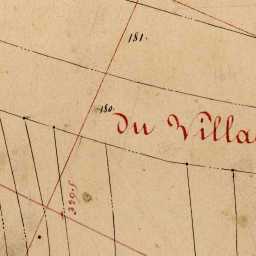 181.
180.
Du Villa
329.5